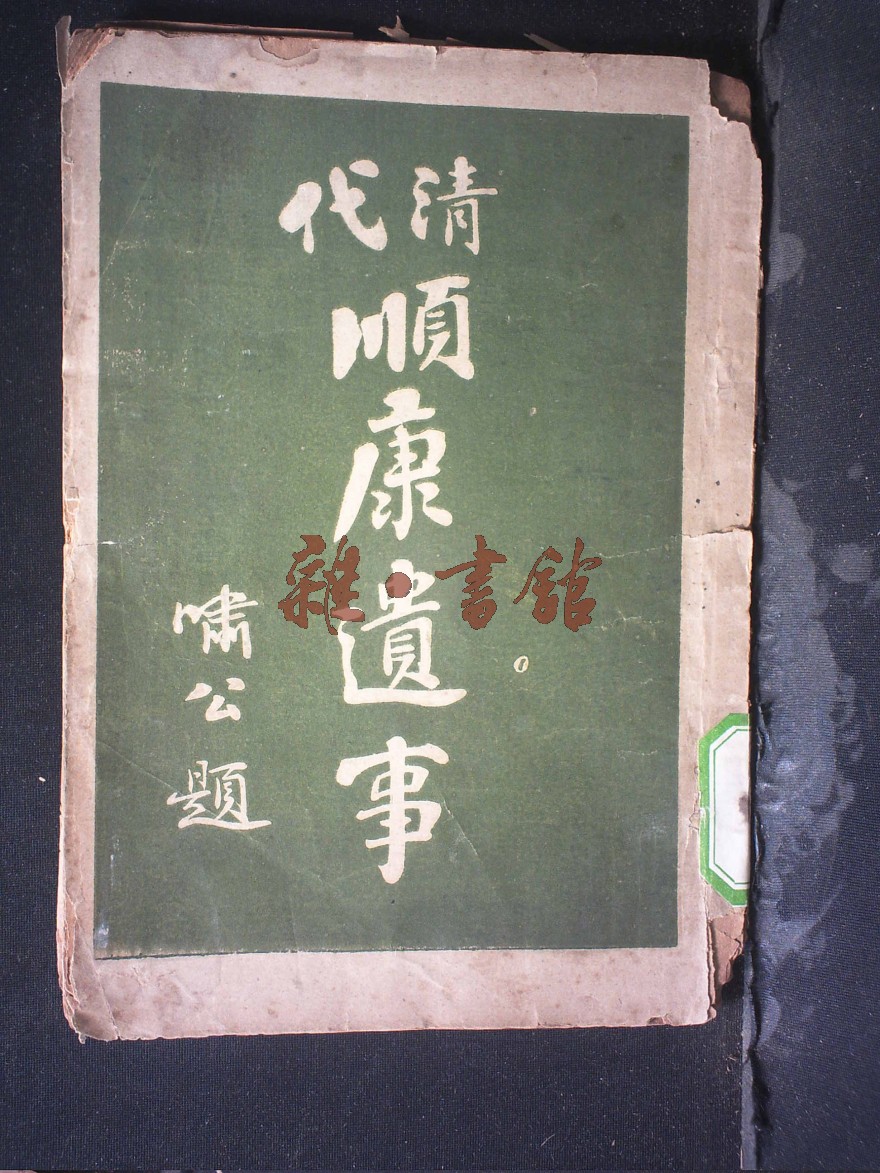 清代
順康遺事
嘯公題
雜·書館